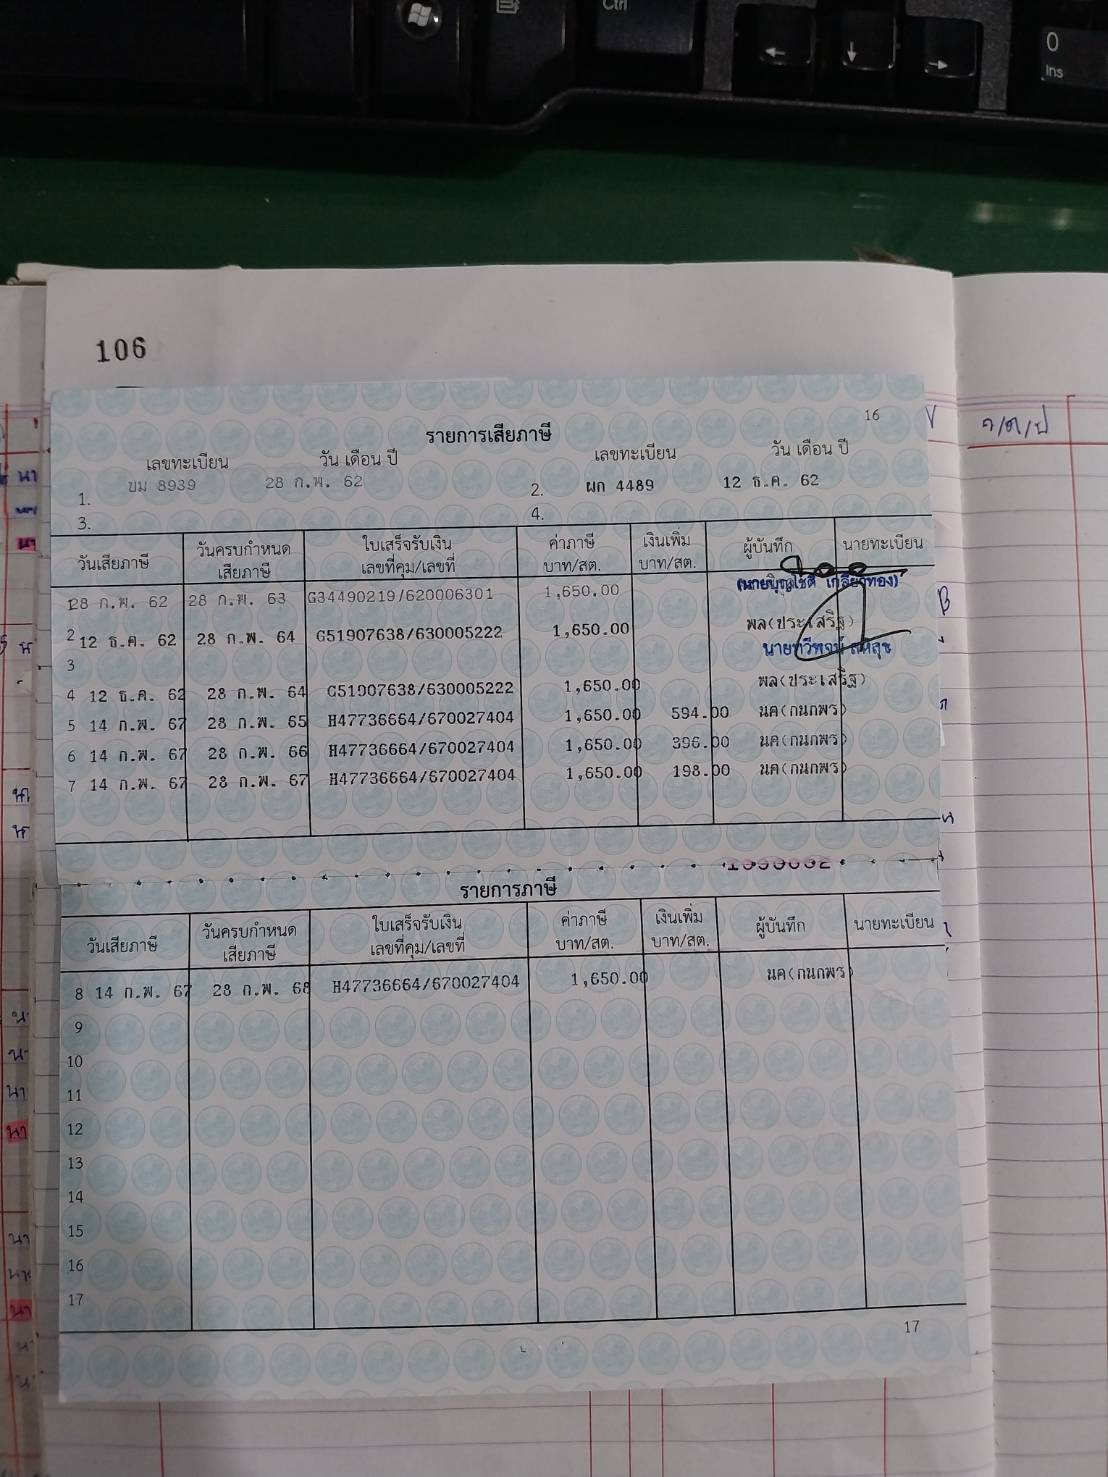 Ctrl
0
Ins
106
16
รายการเสียภาษี
เลขทะเบียน วัน เดือน ปี เลขทะเบียน วัน เดือน ปี
1. ขม 8939 28 ก.พ. 62 2. ผก 4489 12 ธ.ค. 62
3. 4.
วันเสียภาษี วันครบกำหนดเสียภาษี ใบเสร็จรับเงิน เลขที่คุม/เลขที่ ค่าภาษี บาท/สต. เงินเพิ่ม บาท/สต. ผู้บันทึก นายทะเบียน
28 ก.พ. 62 28 ก.พ. 63 G34490219/620006301 1,650.00
2 12 ธ.ค. 62 28 ก.พ. 64 G51907638/630005222 1,650.00 พล(ประเสริฐ)
3
4 12 ธ.ค. 62 28 ก.พ. 64 G51907638/630005222 1,650.00 พล(ประเสริฐ)
5 14 ก.พ. 67 28 ก.พ. 65 H47736664/670027404 1,650.00 594.00 นค(กนกพร)
6 14 ก.พ. 67 28 ก.พ. 66 H47736664/670027404 1,650.00 396.00 นค(กนกพร)
7 14 ก.พ. 67 28 ก.พ. 67 H47736664/670027404 1,650.00 198.00 นค(กนกพร)
รายการภาษี
วันเสียภาษี วันครบกำหนดเสียภาษี ใบเสร็จรับเงิน เลขที่คุม/เลขที่ ค่าภาษี บาท/สต. เงินเพิ่ม บาท/สต. ผู้บันทึก นายทะเบียน
8 14 ก.พ. 67 28 ก.พ. 68 H47736664/670027404 1,650.00 นค(กนกพร)
9
10
11
12
13
14
15
16
17
17
ว/ด/ป